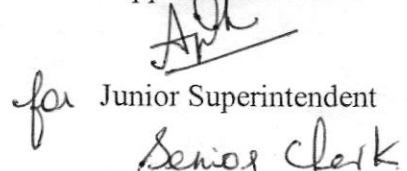 for Junior Superintendent
Senior Clerk